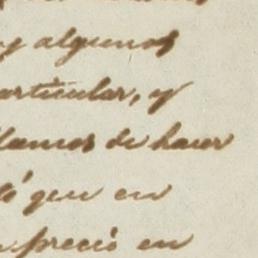 y algunos
articular, y
lamos de hacer
tó que en
preció en